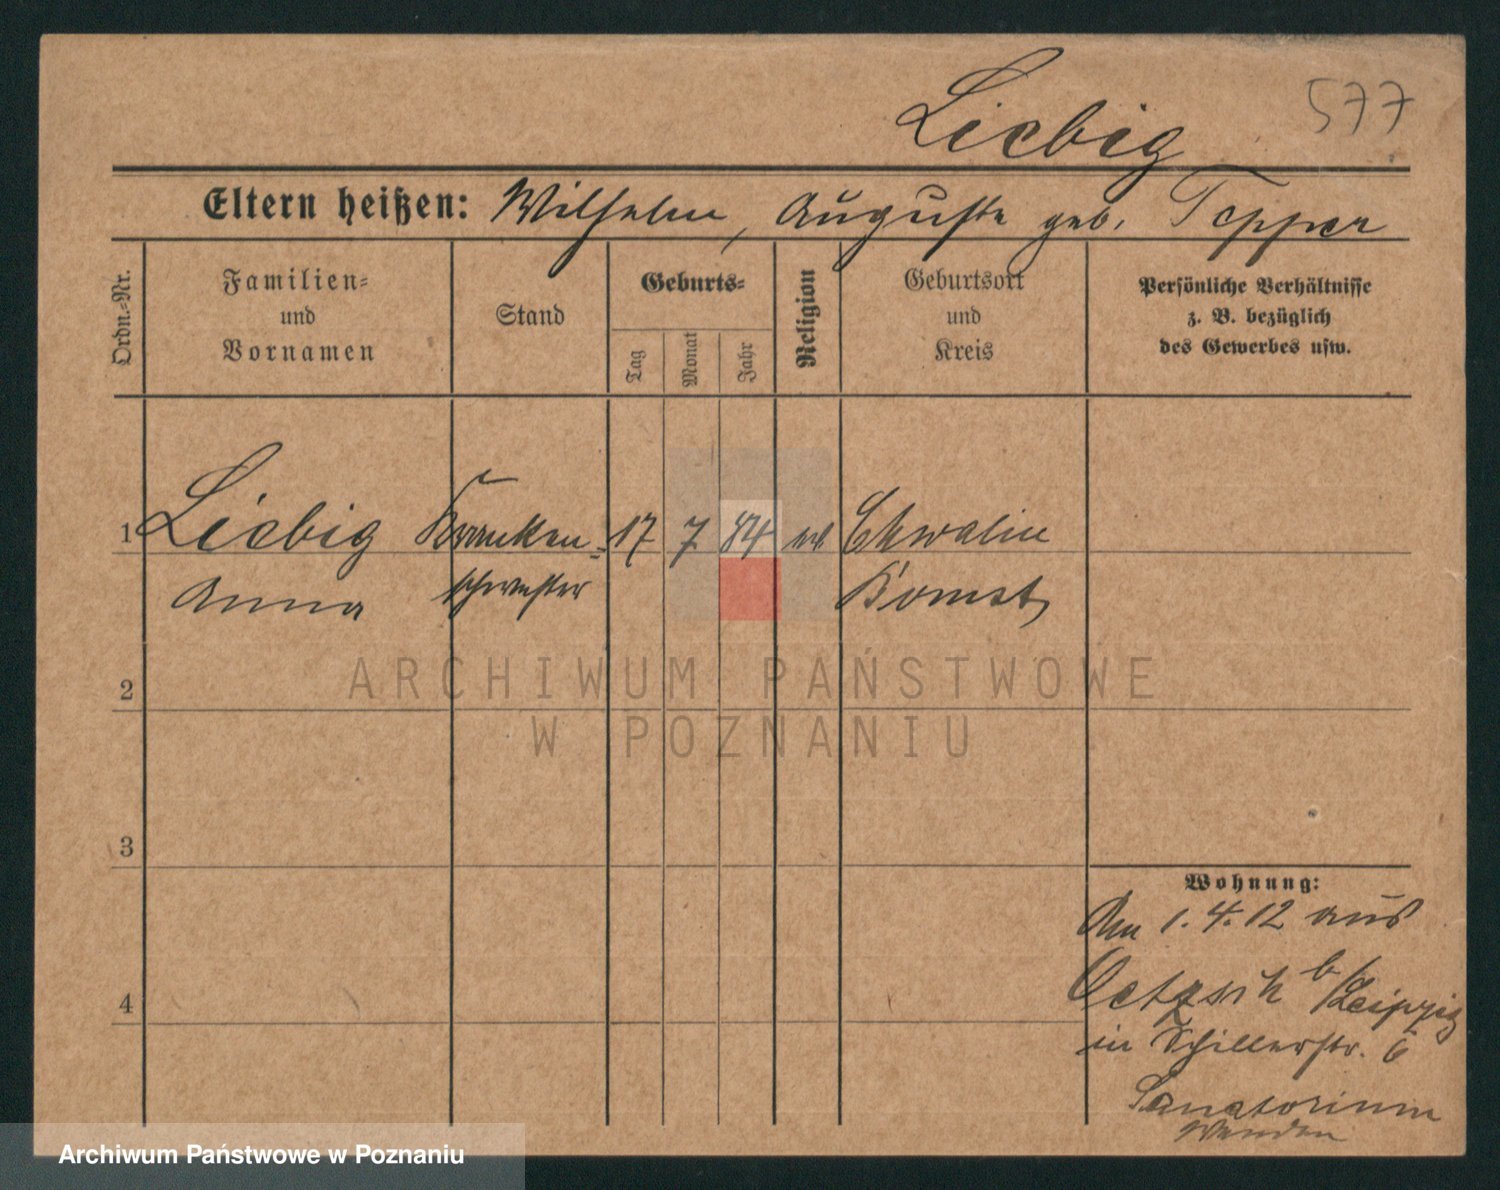 577
Liebig
Eltern heißen: Wilhelm, Auguste geb. Tepper
Ordn.-Nr.
Familien-
und
Vornamen
Stand
Geburts-
Tag
Monat
Jahr
Religion
Geburtsort
und
Kreis
Persönliche Verhältnisse
z. B. bezüglich
des Gewerbes usw.
1 Liebig Kranken- 17 7 84 Chwalim
Anna schwester Bomst
2
3
4
Wohnung:
Am 1.4.12 aus
Oetzsch b/Leipzig
in Schillerstr. 6
Sanatorium
ARCHIWUM PAŃSTWOWE
W POZNANIU
Archiwum Państwowe w Poznaniu